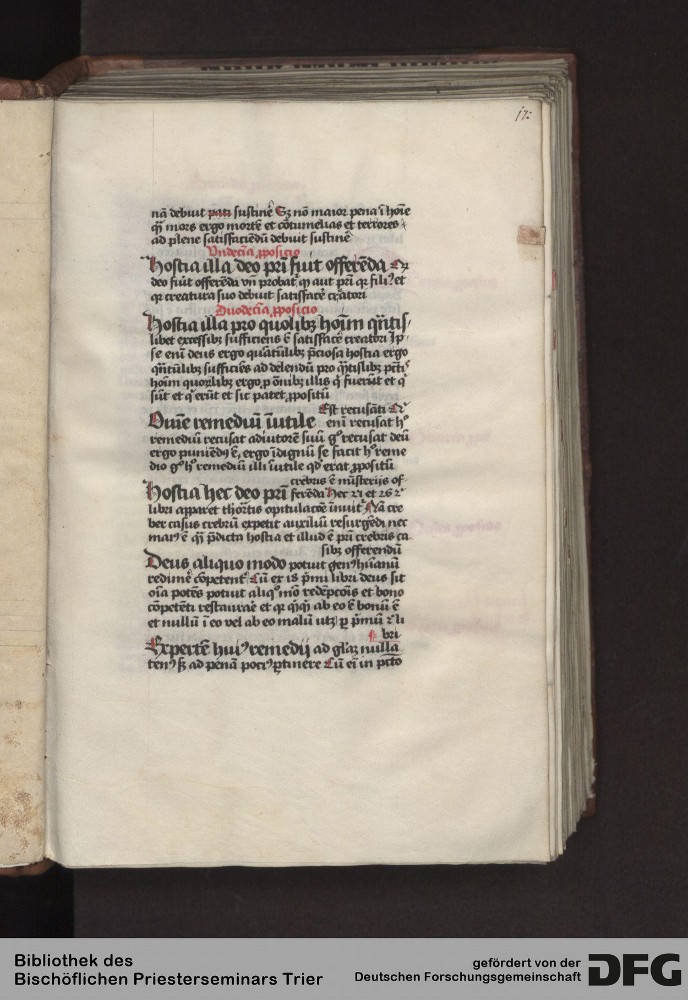 17
nā debuit pati sustinē Sz nō maior pena ī hoīe
q̄ mors ergo mortē et cōtumelias et terrores
ad plene satisfaciēdū debuit sustinē
Undecīa ꝓposicio
Hostia illa deo pri fuit offerēda
deo fuit offerēda vn probat᷑ aut pri qꝛ fili⁹ et
qꝛ creatura suo debuit satisfacē creatori
Duodecīa ꝓposicio
Hostia illa pro quolibꝫ hoīm qn̄tis
libet excessibꝫ sufficiens ē satisfacē creatori Ip
se enī deus ergo quātūlibꝫ p̄ciosa hostia ergo
qn̄tūlibꝫ sufficiēs ad delendū pro qn̄tislibꝫ pctīs
hoīm quorūlibꝫ ergo ꝓ oīnibꝫ illis q̇ fuerūt et q̇
sūt et q̇ erūt et sic patet ꝓpositū
Est recusāti
Quīe remediū īutile enī recusat hᵒ
remediū recusat adiutorē suū gᵒ recusat deū
ergo puniēdꝰ ē, ergo īdignū se facit hᵒ reme
dio gᵒ hᵒ remediū illi īutile qd̛ erat ꝓpositū
crebris ē mīsterijs of
Hostia hec deo pri ferēda Hec 21 et 26 2ⁱ
libri apparet opitulacōe īnuit᷑ Nā cre
ber casus crebrū expetit auxiliū resurgēdi nec
maiꝰ ē q̄ p̄dicta hostia et illud ē pri crebris ca
sibꝫ offerendū
Deus aliquo modo potuit genꝰ hūanū
redimē cōpetent᷑ Cū ex 18 pīmi libri deus sit
oīa potēs potuit aliqᵒ mō redēpcōis et bono
cōpetēti restaurare et qꝛ q̇cq̇d ab eo ē bonū ē
et nullū ī eo vel ab eo malū utꝫ ꝑ pīmū 2ⁱ li
bri
Expertē huiꝰ remedij ad gl̄iaꝫ nulla
tenꝰ sꝫ ad penā pociꝰ ꝑtinere Cū eī in pctō
Bibliothek des
Bischöflichen Priesterseminars Trier
gefördert von der
Deutschen Forschungsgemeinschaft
DFG